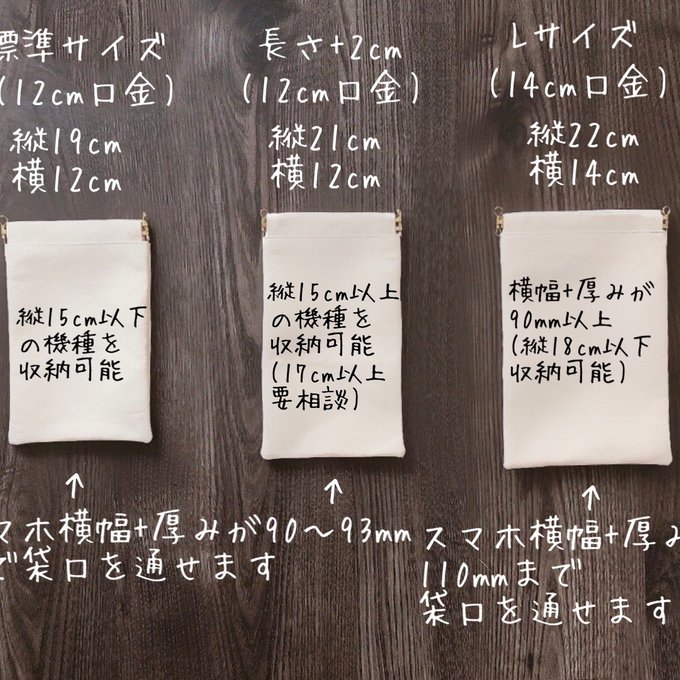 標準サイズ
(12cm口金)
縦19cm
横12cm
縦15cm以下
の機種を
収納可能
長さ+2cm
(12cm口金)
縦21cm
横12cm
縦15cm以上
の機種を
収納可能
(17cm以上
要相談)
↑ ↑
マホ横幅+厚みが90〜93mm
で袋口を通せます
Lサイズ
(14cm口金)
縦22cm
横14cm
横幅+厚みが
90mm以上
(縦18cm以下
収納可能)
↑
スマホ横幅+厚み
110mmまで
袋口を通せます